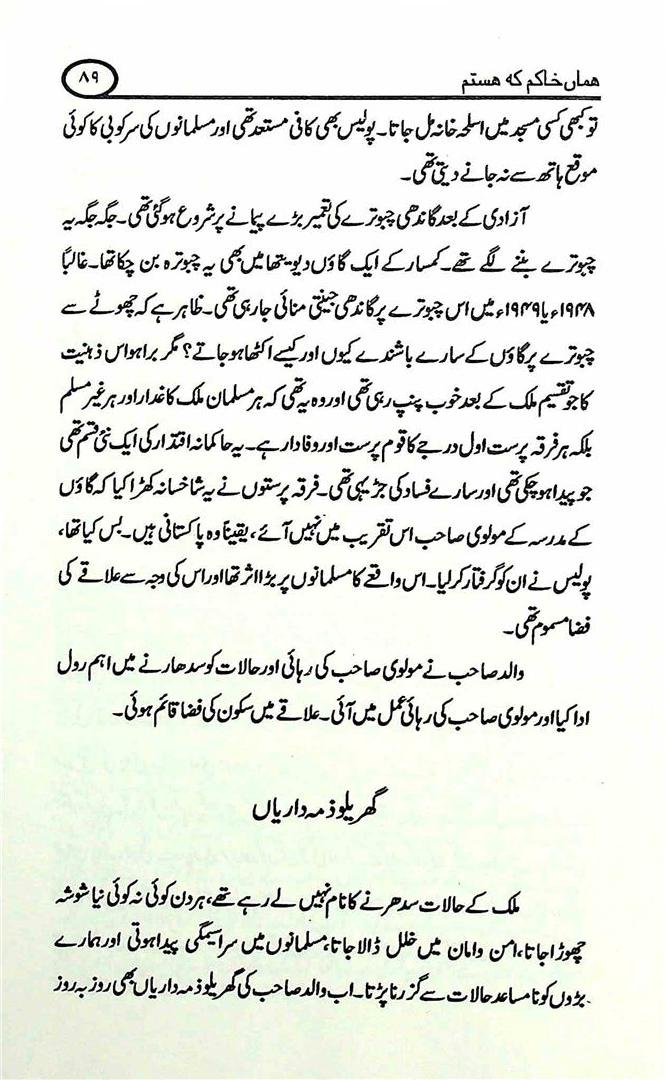 ہماں خاکم کہ ہستم
۸۹
تو کبھی کسی مسجد میں اسلحہ خانہ مل جاتا۔ پولیس بھی کافی مستعد تھی اور مسلمانوں کی سرکوبی کا کوئی
موقع ہاتھ سے نہ جانے دیتی تھی۔
آزادی کے بعد گاندھی چبوترے کی تعمیر بڑے پیمانے پر شروع ہوگئی تھی۔ جگہ جگہ یہ
چبوترے بننے لگے تھے۔ کمسار کے ایک گاؤں دیویتھا میں بھی یہ چبوترہ بن چکا تھا۔ غالباً
۱۹۴۸ء یا ۱۹۴۹ء میں اس چبوترے پر گاندھی جینتی منائی جارہی تھی۔ ظاہر ہے کہ چھوٹے سے
چبوترے پر گاؤں کے سارے باشندے کیوں اور کیسے اکٹھا ہوجاتے؟ مگر براہو اس ذہنیت
کا جو تقسیم ملک کے بعد خوب پنپ رہی تھی اور وہ یہ تھی کہ ہر مسلمان ملک کا غدار اور ہر غیر مسلم
بلکہ ہر فرقہ پرست اول درجے کا قوم پرست اور وفادار ہے۔ یہ حاکمانہ اقتدار کی ایک نئی قسم تھی
جو پیدا ہوچکی تھی اور سارے فساد کی جڑ یہی تھی۔ فرقہ پرستوں نے یہ شاخسانہ کھڑا کیا کہ گاؤں
کے مدرسہ کے مولوی صاحب اس تقریب میں نہیں آئے، یقیناً وہ پاکستانی ہیں۔ بس کیا تھا،
پولیس نے ان کو گرفتار کرلیا۔ اس واقعے کا مسلمانوں پر بڑا اثر تھا اور اس کی وجہ سے علاقے کی
فضا مسموم تھی۔
والد صاحب نے مولوی صاحب کی رہائی اور حالات کو سدھارنے میں اہم رول
ادا کیا اور مولوی صاحب کی رہائی عمل میں آئی۔ علاقے میں سکون کی فضا قائم ہوئی۔
گھریلو ذمہ داریاں
ملک کے حالات سدھرنے کا نام نہیں لے رہے تھے، ہر دن کوئی نہ کوئی نیا شوشہ
چھوڑا جاتا، امن وامان میں خلل ڈالا جاتا، مسلمانوں میں سراسیمگی پیدا ہوتی اور ہمارے
بڑوں کو نا مساعد حالات سے گزرنا پڑتا۔ اب والد صاحب کی گھریلو ذمہ داریاں بھی روز بہ روز